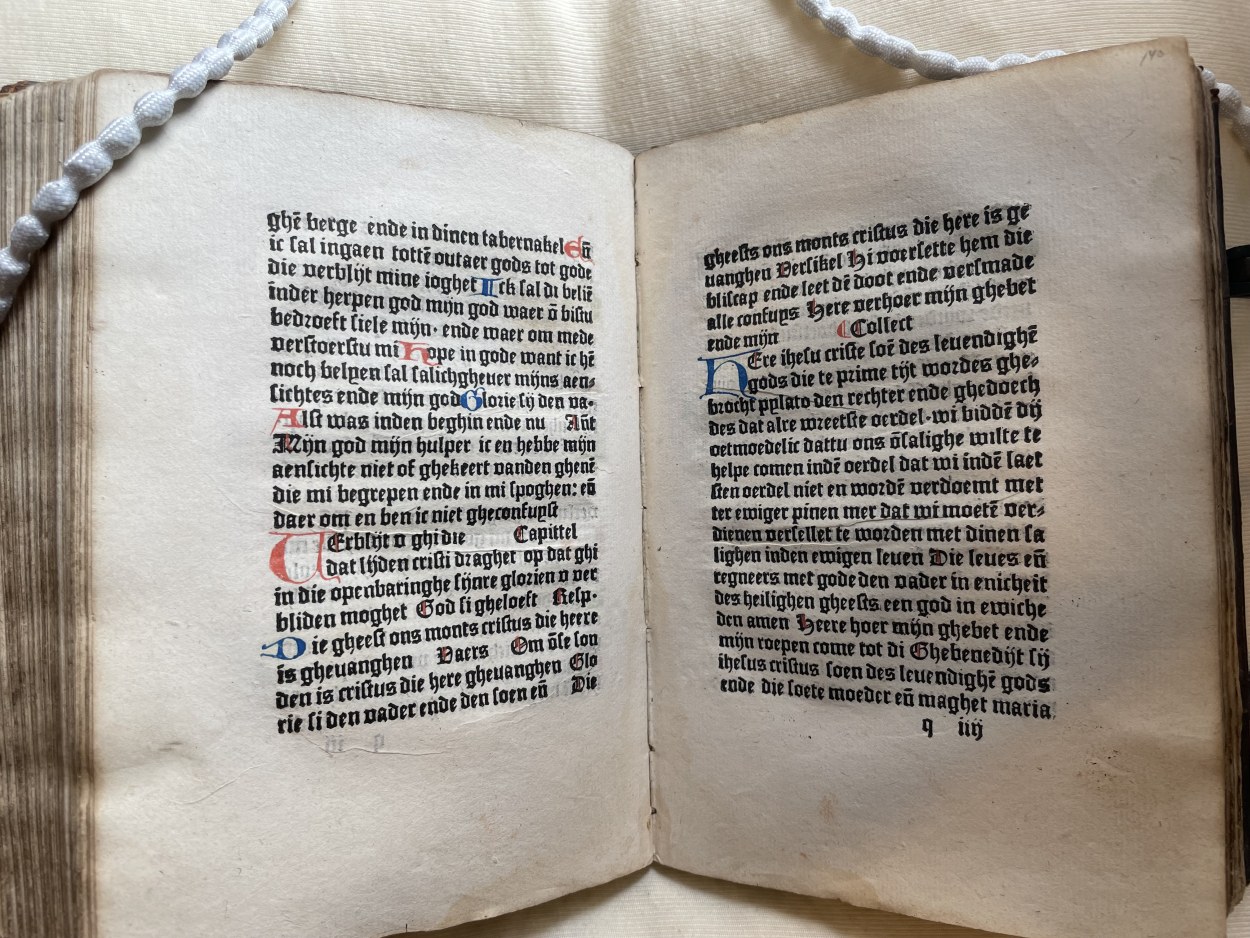 ghē berge ende in dinen tabernakel Eñ
ic sal ingaen tottē outaer gods tot gode
die verblijt mine ioghet Ick sal di beliē
īnder herpen god mijn god waer ō bistu
bedroeft siele mijn· ende waer om mede
verstoerstu mi Hope in gode want ic hē
noch belyen sal salichgheuer mijns aen⸗
sichtes ende mijn god Glorie sij den va·
Alst was inden beghin ende nu Añt
Mijn god mijn hulper ic en hebbe mijn
aensichte niet of ghekeert vanden ghenē
die mi begrepen ende in mi spoghen: eñ
daer om en ben ic niet gheconfuyst
VErblijt v ghi die Capittel
dat lijden cristi draghet op dat ghi
in die openbaringhe sijnre glorien v ver
bliden moghet God si gheloeft Resp·
Die gheest ons monts cristus die heere
is gheuanghen Vaers Om ōse son
den is cristus die here gheuanghen Glo
rie si den vader ende den soen eñ Die
140
gheests ons monts cristus die here is ge
uanghen Versikel Hi voersette hem die
bliscap ende leet dē doot ende versmade
alle confuys Here verhoer mijn ghebet
ende mijn Collect
HEre ihesu criste soē des leuendighē
gods die te prime tijt wordes ghe⸗
brocht pylato den rechter ende ghedoech
des dat alre wreetste oerdel·wi biddē dij
oetmoedelic dattu ons ōsalighe wilte te
helpe comen indē oerdel dat wi indē laet
sten oerdel niet en wordē verdoemt met
ter ewiger pinen mer dat wi moetē ver⸗
dienen versellet te worden met dinen sa
lighen inden ewigen leuen Die leues eñ
regneers met gode den vader in enicheit
des heilighen gheests een god in ewiche
den amen Heere hoer mijn ghebet ende
mijn roepen come tot di Ghebenedijt sij
ihesus cristus soen des leuendighē gods
ende die soete moeder eñ maghet maria
q iiij